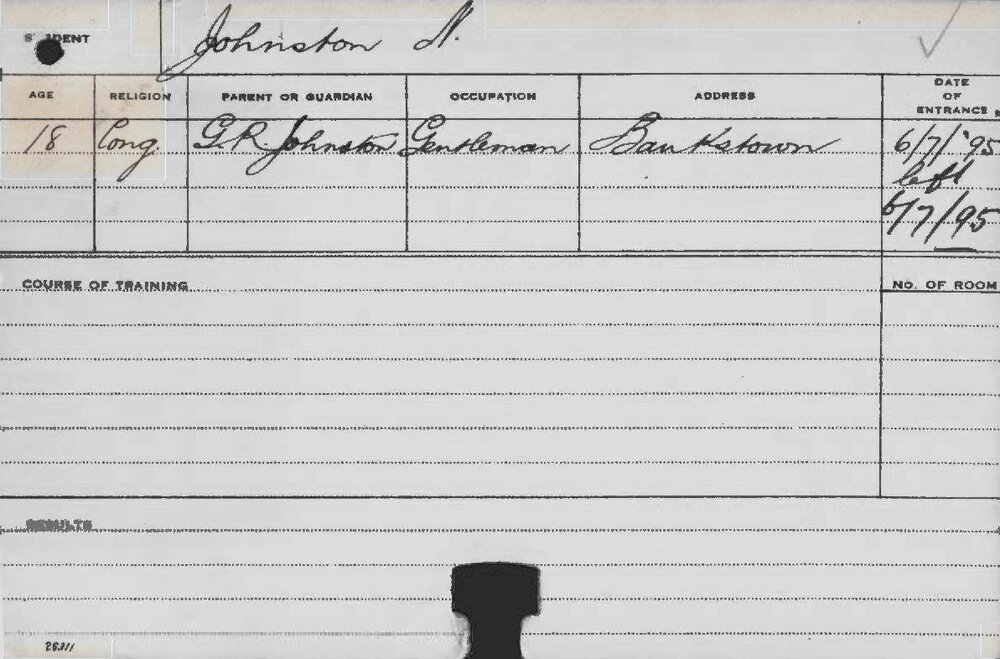 STUDENT Johnston N.
AGE RELIGION PARENT OR GUARDIAN OCCUPATION ADDRESS DATE OF ENTRANCE
18 Cong. G.R. Johnston Gentleman Bankstown 6/7/'95
left
6/7/95
COURSE OF TRAINING NO. OF ROOM
RESULTS